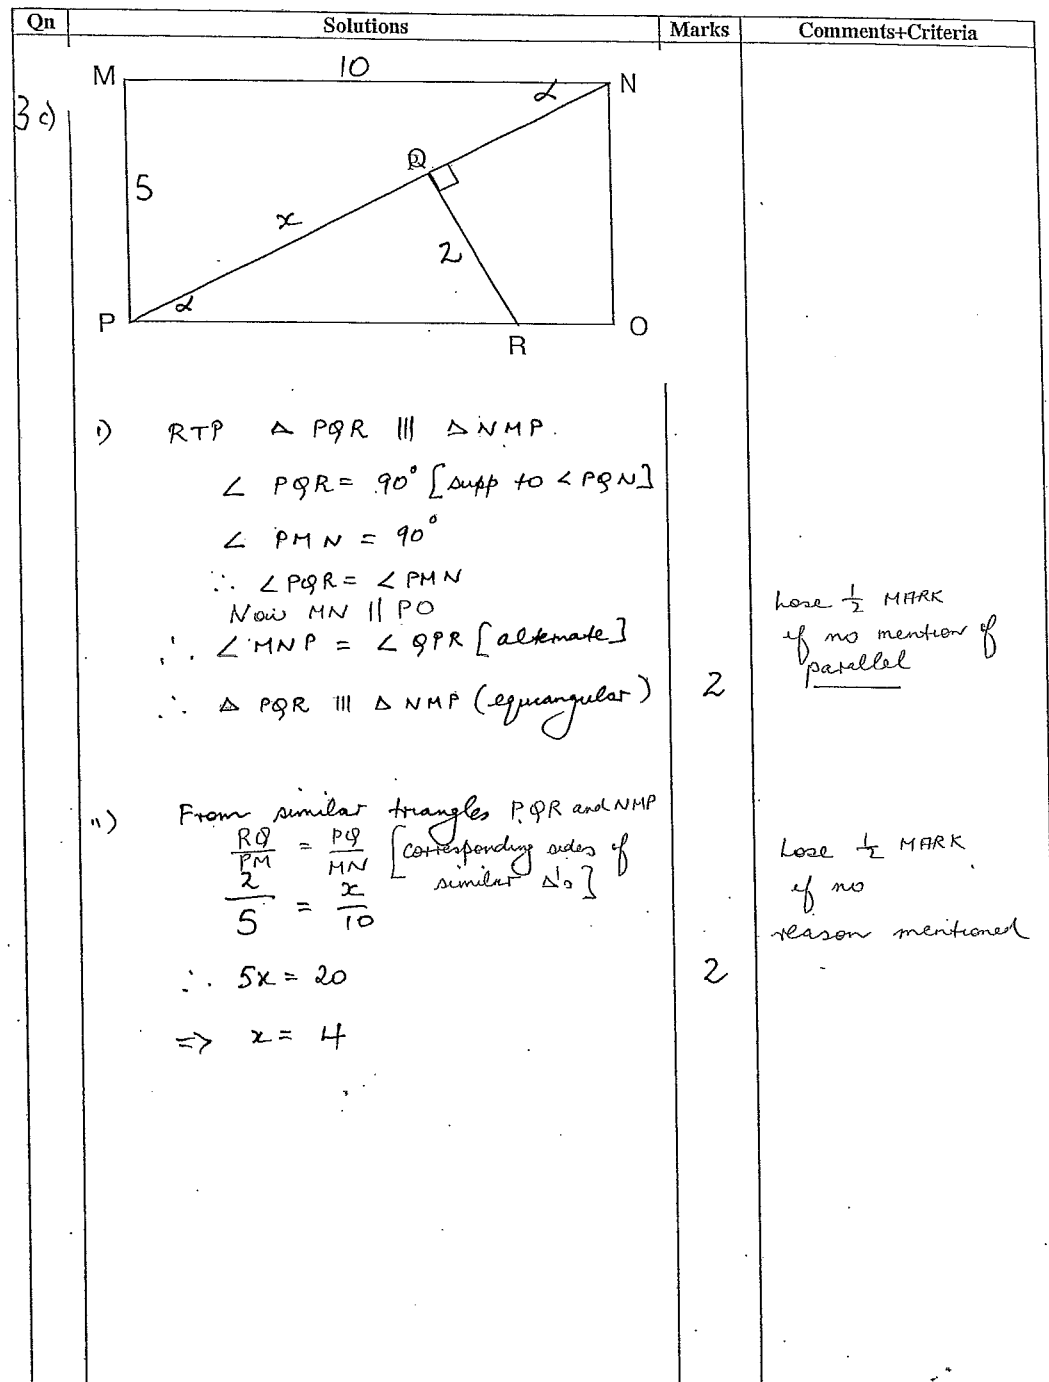 Qn Solutions Marks Comments+Criteria
3 c)
M 10 N
α
Q
5
x
2
α
P R O
i) RTP Δ PQR ||| Δ NMP.
∠ PQR = 90° [supp to < PQN]
∠ PMN = 90°
∴ ∠PQR = ∠PMN
Now MN || PO
∴ ∠MNP = ∠QPR [alternate]
∴ Δ PQR ||| Δ NMP (equiangular) 2
Lose 1/2 MARK
if no mention of
parallel
ii) From similar triangles PQR and NMP
RQ/PM = PQ/MN [corresponding sides of
similar Δ's]
2/5 = x/10
∴ 5x = 20
=> x = 4
2
Lose 1/2 MARK
if no
reason mentioned